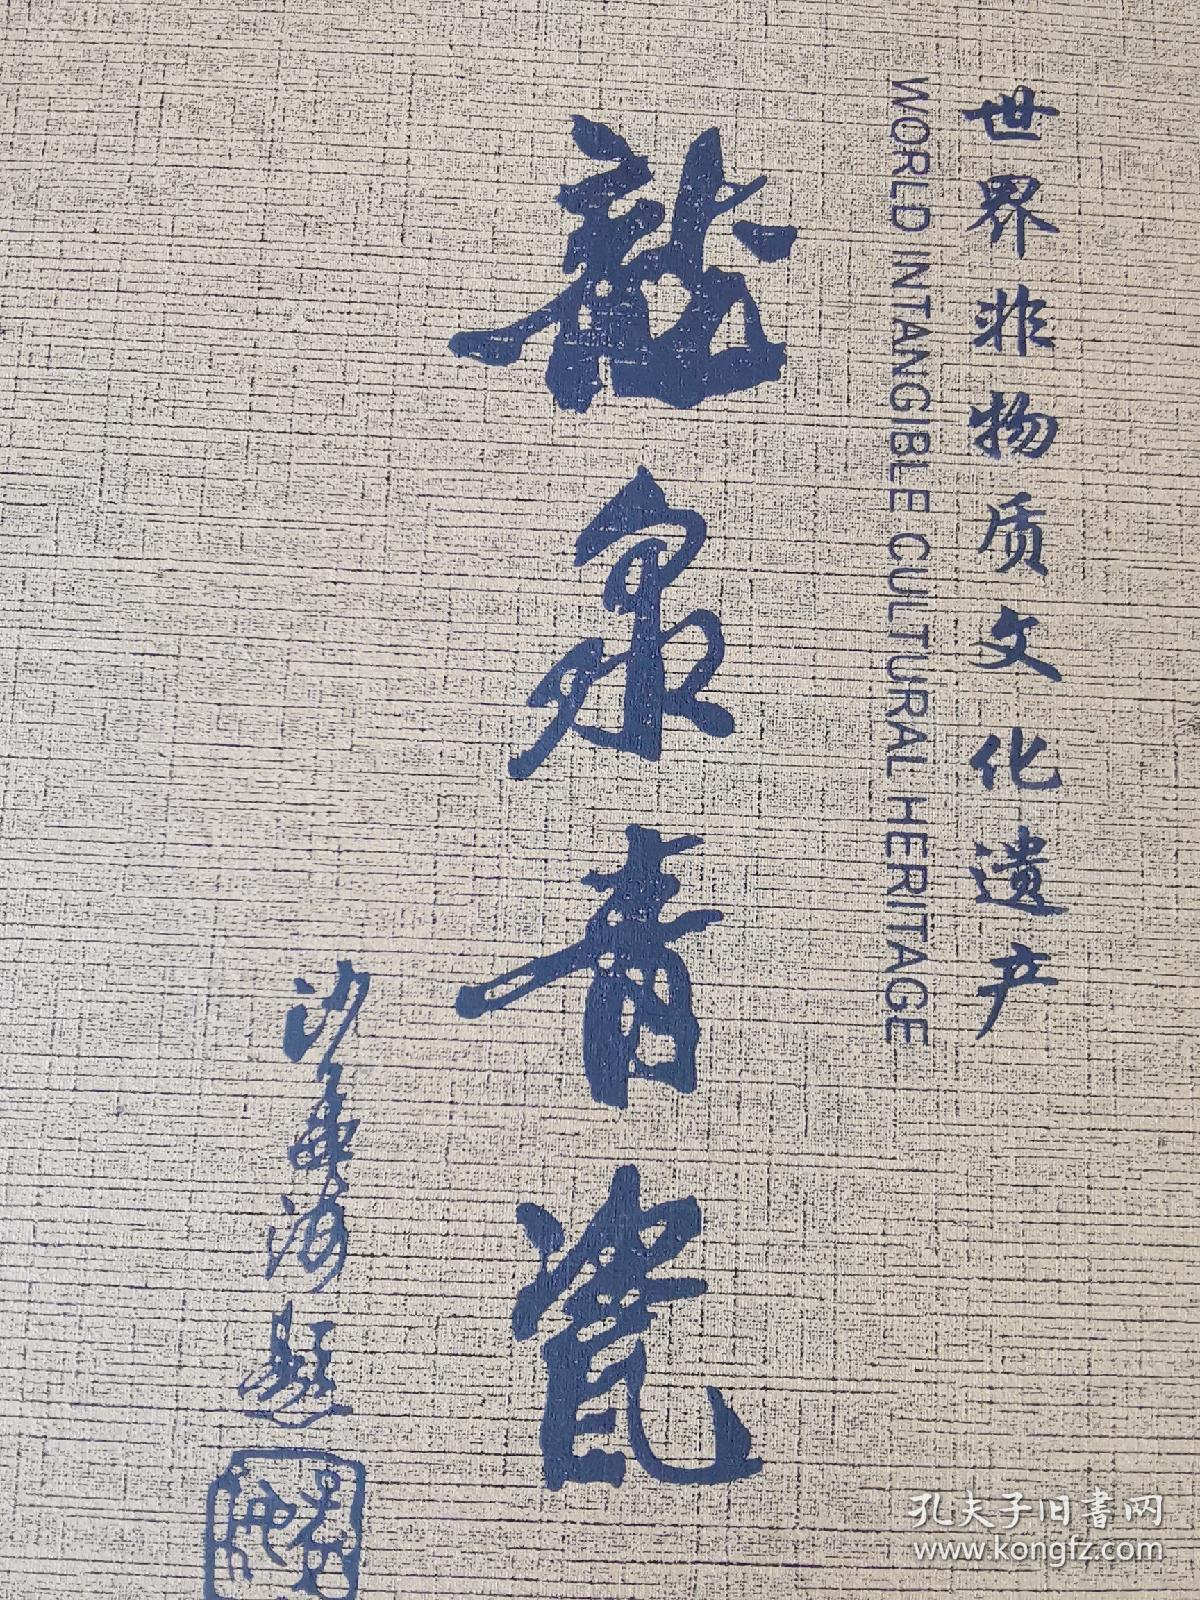 世界非物质文化遗产
WORLD INTANGIBLE CULTURAL HERITAGE
龍泉青瓷
沙孟海题
孔夫子旧書网
www.kongfz.com